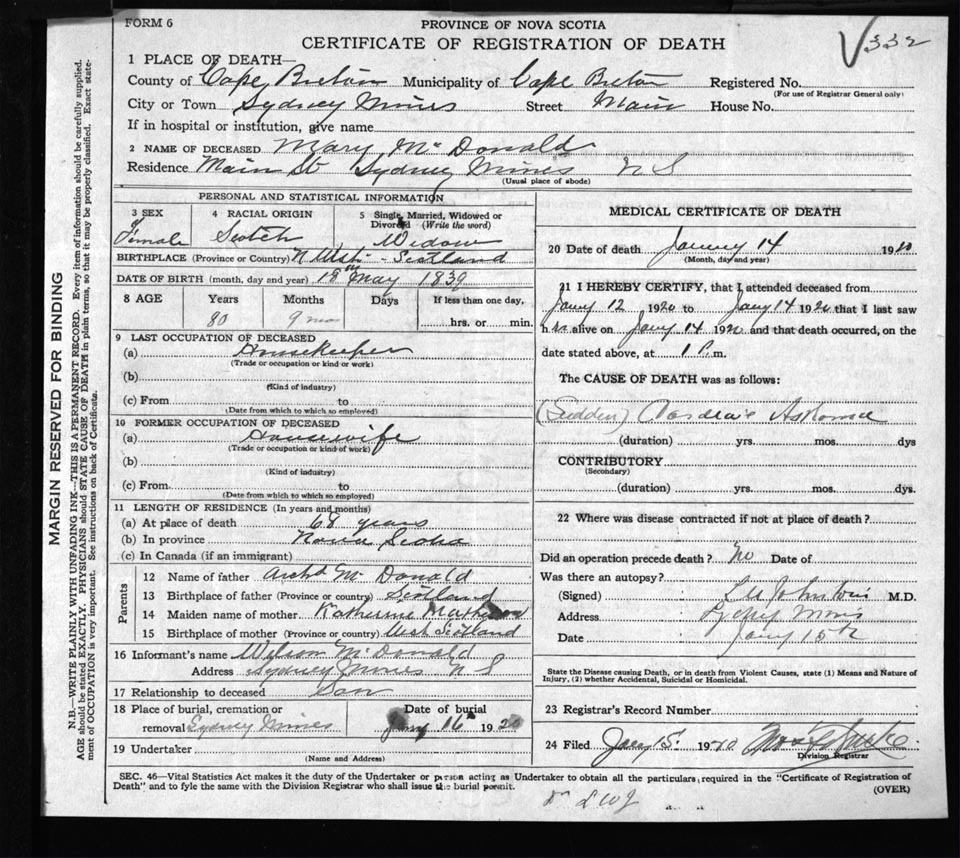 FORM 6
PROVINCE OF NOVA SCOTIA
CERTIFICATE OF REGISTRATION OF DEATH
V 332
1 PLACE OF DEATH—
County of Cape Breton Municipality of Cape Breton Registered No.
(For use of Registrar General only)
City or Town Sydney Mines Street Main House No.
If in hospital or institution, give name
2 NAME OF DECEASED Mary Mc Donald
Residence Main St Sydney Mines N S
(Usual place of abode)
PERSONAL AND STATISTICAL INFORMATION
3 SEX 4 RACIAL ORIGIN 5 Single, Married, Widowed or Divorced (Write the word)
Female Scotch Widow
BIRTHPLACE (Province or Country) Scotland
DATE OF BIRTH (month, day and year) 18th May 1839
8 AGE Years Months Days If less than one day,
80 9 mo hrs. or min.
9 LAST OCCUPATION OF DECEASED
(a) Housekeeper
(Trade or occupation or kind or work)
(b)
(Kind of industry)
(c) From to
(Date from which to which so employed)
10 FORMER OCCUPATION OF DECEASED
(a) Housewife
(Trade or occupation or kind of work)
(b)
(Kind of industry)
(c) From to
(Date from which to which so employed)
11 LENGTH OF RESIDENCE (In years and months)
(a) At place of death 68 years
(b) In province Nova Scotia
(c) In Canada (if an immigrant)
Parents
12 Name of father Archd Mc Donald
13 Birthplace of father (Province or country) Scotland
14 Maiden name of mother Katherine
15 Birthplace of mother (Province or country) West Scotland
16 Informant's name Wilson McDonald
Address Sydney Mines N S
17 Relationship to deceased Son
18 Place of burial, cremation or Date of burial
removal Sydney Mines Jany 16th 1920
19 Undertaker
(Name and Address)
MEDICAL CERTIFICATE OF DEATH
20 Date of death 14 1920
(Month, day and year)
21 I HEREBY CERTIFY, that I attended deceased from
Jany 12 1920 to Jany 14 1920 that I last saw
her alive on Jany 14 1920 and that death occurred, on the
date stated above, at 1 P.m.
The CAUSE OF DEATH was as follows:
(Sudden) Cardiac Asthma
(duration) yrs. mos. dys
CONTRIBUTORY
(Secondary)
(duration) yrs. mos. dys.
22 Where was disease contracted if not at place of death?
Did an operation precede death? No Date of
Was there an autopsy?
(Signed) Johnstone M.D.
Address Sydney Mines
Date Jany 15th
State the Disease causing Death, or in death from Violent Causes, state (1) Means and Nature of Injury, (2) whether Accidental, Suicidal or Homicidal.
23 Registrar's Record Number
24 Filed Jany 15 1920
Division Registrar
SEC. 46—Vital Statistics Act makes it the duty of the Undertaker or person acting as Undertaker to obtain all the particulars required in the "Certificate of Registration of
Death" and to fyle the same with the Division Registrar who shall issue the burial permit.
(OVER)
MARGIN RESERVED FOR BINDING
N.B.—WRITE PLAINLY WITH UNFADING INK—THIS IS A PERMANENT RECORD. Every item of information should be carefully supplied.
AGE should be stated EXACTLY. PHYSICIANS should STATE CAUSE OF DEATH in plain terms, so that it may be properly classified. Exact state-
ment of OCCUPATION is very important. See instructions on back of Certificate.